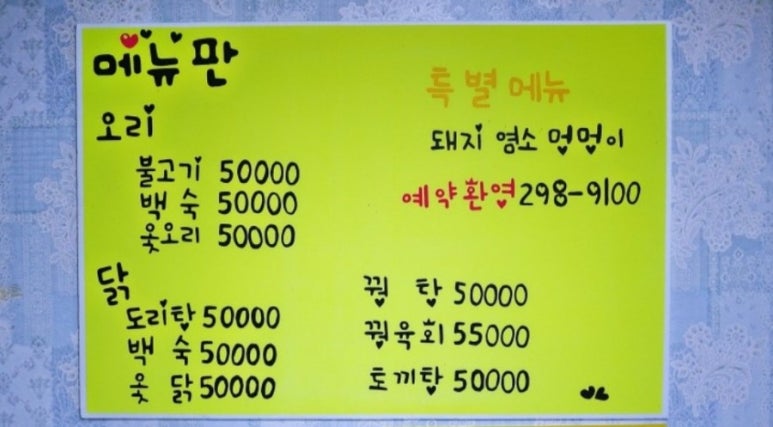 메뉴판
오리
불고기 50000
백숙 50000
옻오리 50000
닭
도리탕 50000
백숙 50000
옻닭 50000
특별메뉴
돼지 염소 멍멍이
예약환영 298-9100
꿩탕 50000
꿩육회 55000
토끼탕 50000